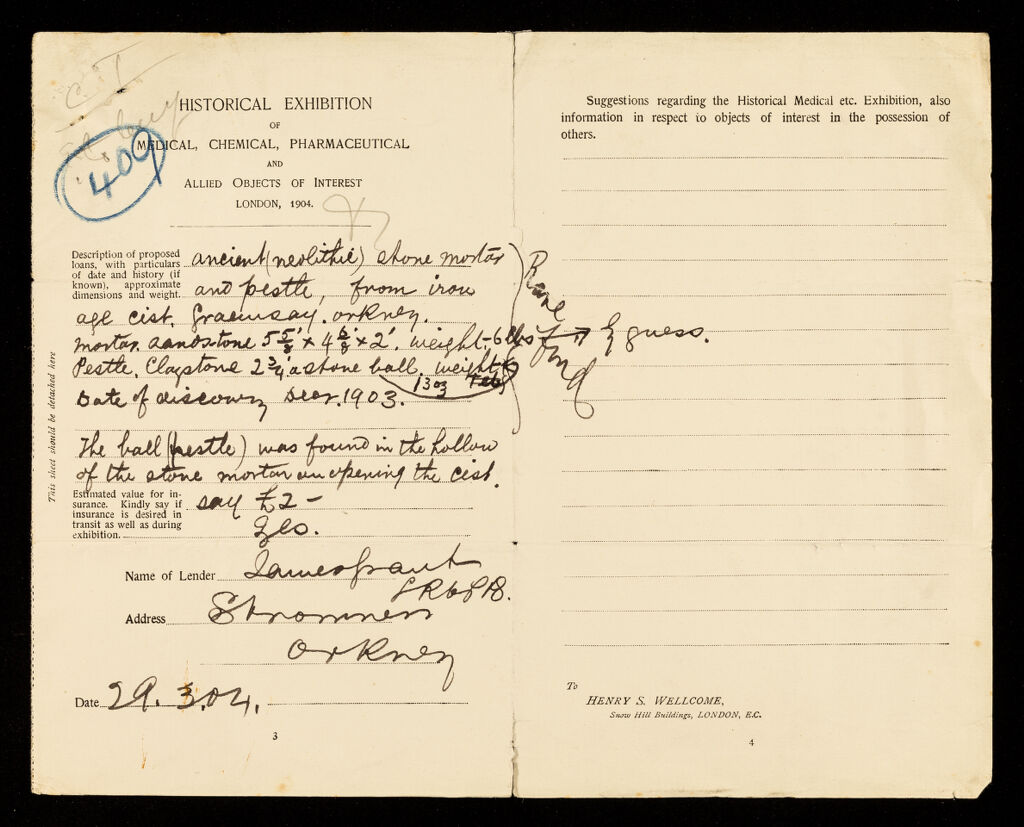 409
HISTORICAL EXHIBITION
OF
MEDICAL, CHEMICAL, PHARMACEUTICAL
AND
ALLIED OBJECTS OF INTEREST
LONDON, 1904.
Description of proposed
loans, with particulars
of date and history (if
known), approximate
dimensions and weight.
ancient (neolithic) stone mortar
and pestle, from iron
age cist. Graemsay. Orkney.
Mortar. sandstone 5 5/8' × 4 6/8' × 2'. weight - 6 lbs
Pestle. Claystone 2 3/4' a stone ball. weight
13oz
Date of discovery Decr. 1903.
Rare find
guess.
The ball (pestle) was found in the hollow
of the stone mortar on opening the cist.
Estimated value for in-
surance. Kindly say if
insurance is desired in
transit as well as during
exhibition.
say £2 -
yes.
Name of Lender James Grant
Address Stromness
Orkney
Date 29. 3. 04.
3
This sheet should be detached here
Suggestions regarding the Historical Medical etc. Exhibition, also
information in respect to objects of interest in the possession of
others.
To
HENRY S. WELLCOME,
Snow Hill Buildings, LONDON, E.C.
4